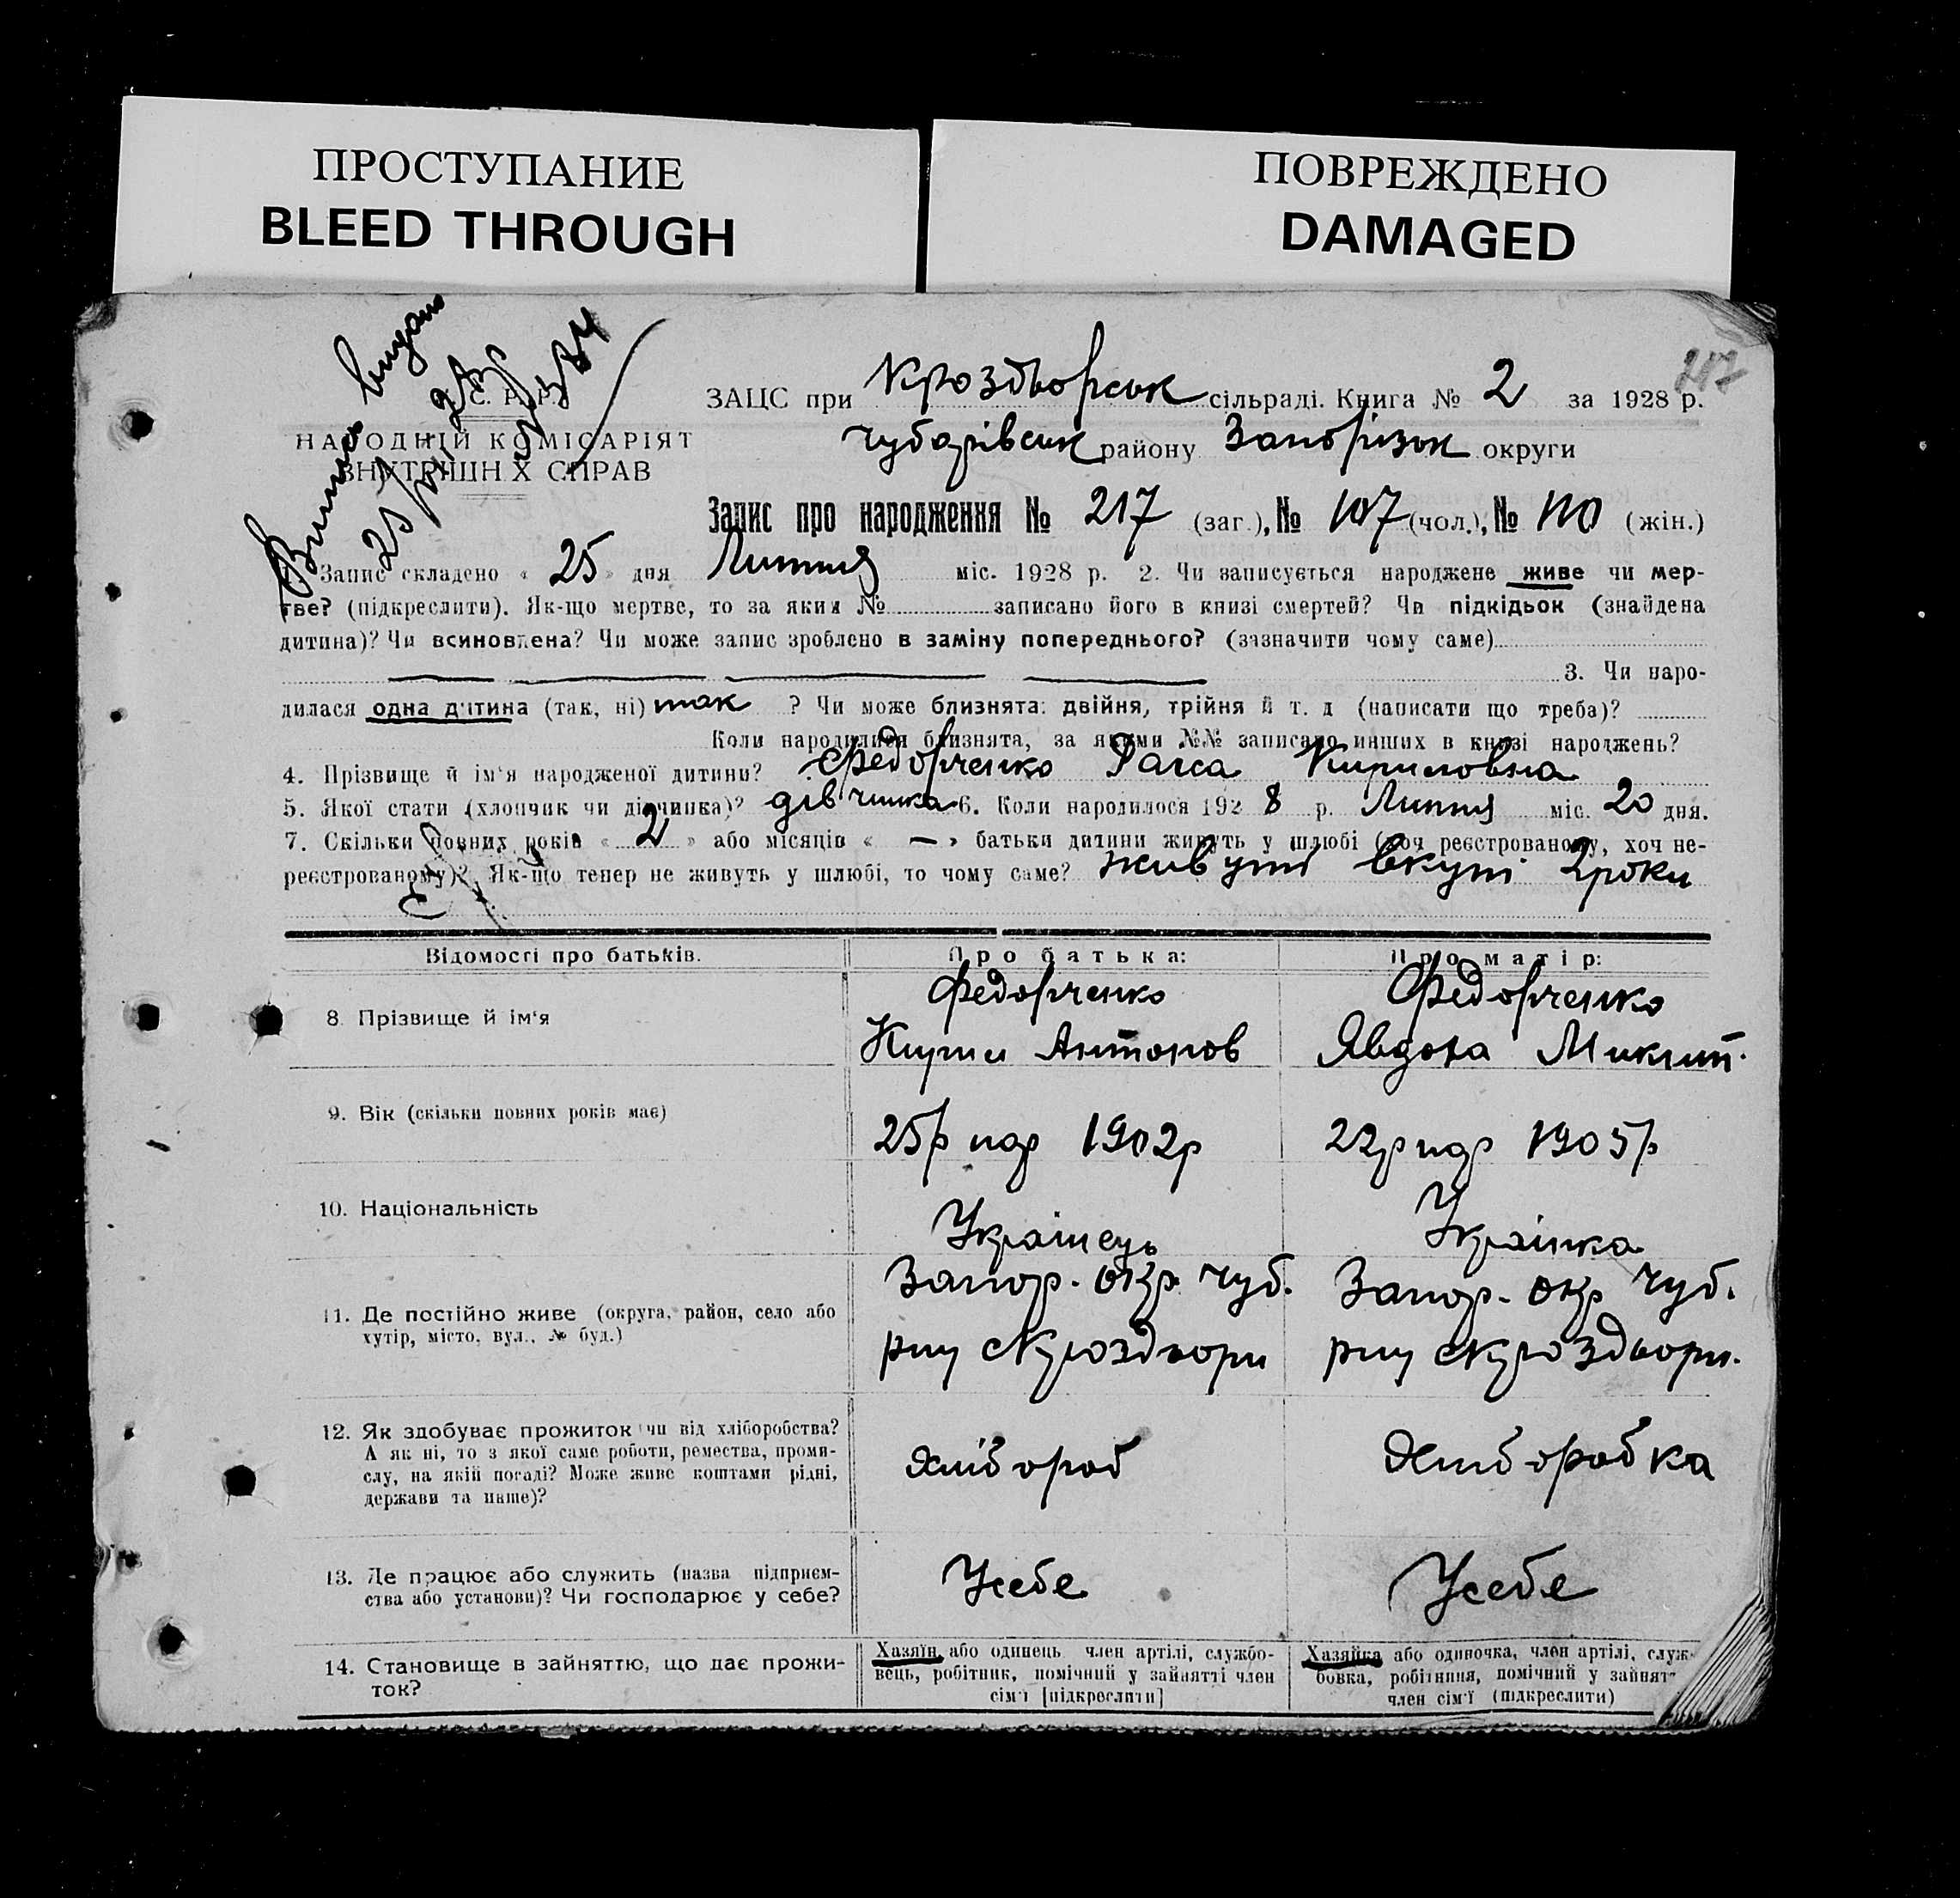 ПРОСТУПАНИЕ
BLEED THROUGH
ПОВРЕЖДЕНО
DAMAGED
217
С. Р. Р.
НАРОДНІЙ КОМІСАРІЯТ
ВНУТРІШН Х СПРАВ
ЗАЦС при Кроздворськ сільраді. Книга № 2 за 1928 р.
Чубарівськ району Запорізьк округи
Запис про народження № 217 (заг.), № 107 (чол.), № 110 (жін.)
1. Запис складено « 25 » дня Липня міс. 1928 р. 2. Чи записується народжене живе чи мер-
тве? (підкреслити). Як-що мертве, то за яким № записано його в книзі смертей? Чи підкідьок (знайдена
дитина)? Чи всиновлена? Чи може запис зроблено в заміну попереднього? (зазначити чому саме)
3. Чи наро-
дилася одна дитина (так, ні) так ? Чи може близнята: двійня, трійня й т. д (написати що треба)?
Коли народилися близнята, за якими №№ записано инших в книзі народжень?
4. Прізвище й ім'я народженої дитини? Федорченко Раїса Кириловна
5. Якої стати (хлопчик чи дівчинка)? дівчинка 6. Коли народилося 1928 р. Липня міс. 20 дня.
7. Скільки повних років « 2 » або місяців « — » батьки дитини живуть у шлюбі (хоч реєстрованому, хоч не-
реєстрованому)? Як-що тепер не живуть у шлюбі, то чому саме? живуть вкупі 2 роки
Відомості про батьків. Про батька: Про матір:
8. Прізвище й ім'я
Федорченко
Кирил Антонов
Федорченко
Явдоха Микит.
9. Вік (скільки повних років має)
25р нар 1902р
22р нар 1905р
10. Національність
Українець
Українка
11. Де постійно живе (округа, район, село або
хутір, місто, вул., № буд.)
Запор. окр. Чуб.
рну с Кроздвори
Запор. окр Чуб.
рну с Кроздвори.
12. Як здобуває прожиток чи від хліборобства?
А як ні, то з якої саме роботи, ремества, проми-
слу, на якій посаді? Може живе коштами рідні,
держави та инше)?
Хлібороб
Хлиборобка
13. Де працює або служить (назва підприєм-
ства або установи)? Чи господарює у себе?
У себе
У себе
14. Становище в зайняттю, що дає прожи-
ток?
Хазяїн або одинець член артілі, службо-
вець, робітник, помічний у зайнятті член
сім'ї [підкреслити]
Хазяйка або одиночка, член артілі, служ-
бовка, робітниця, помічний у зайнят
член сім'ї (підкреслити)